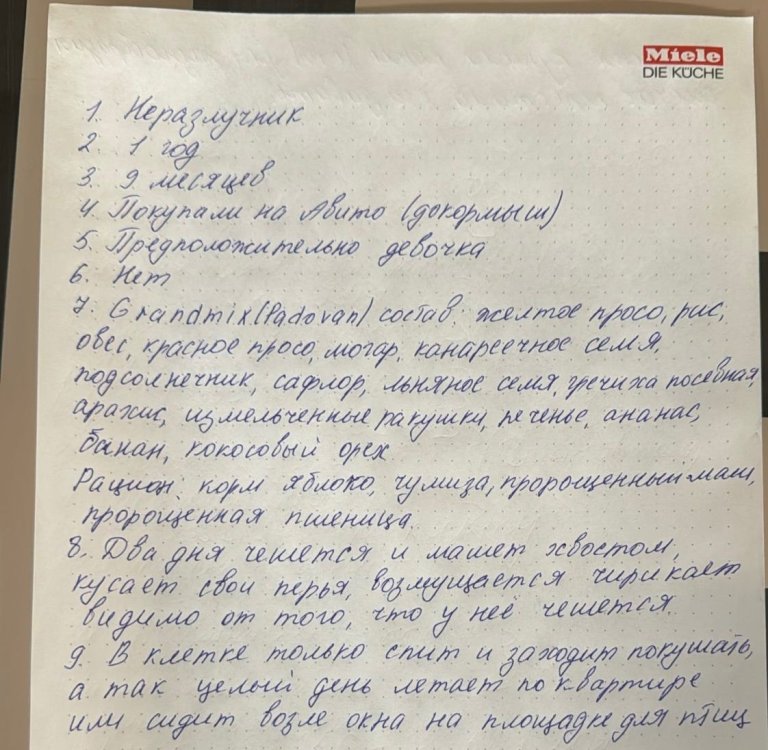 Miele
DIE KÜCHE
1. Неразлучник
2. 1 год
3. 9 месяцев
4. Покупали на Авито (докормыш)
5. Предположительно девочка
6. Нет
7. Grandmix (Padovan) состав: желтое просо, рис,
овес, красное просо, могар, канареечное семя,
подсолнечник, сафлор, льняное семя, гречиха посевная,
арахис, измельченные ракушки, печенье, ананас,
банан, кокосовый орех
Рацион: корм яблоко, чумиза, пророщенный маш,
пророщенная пшеница.
8. Два дня чешется и машет хвостом,
кусает свои перья, возмущается чирикает
видимо от того, что у неё чешется.
9. В клетке только спит и заходит покушать,
а так целый день летает по квартире
или сидит возле окна на площадке для птиц